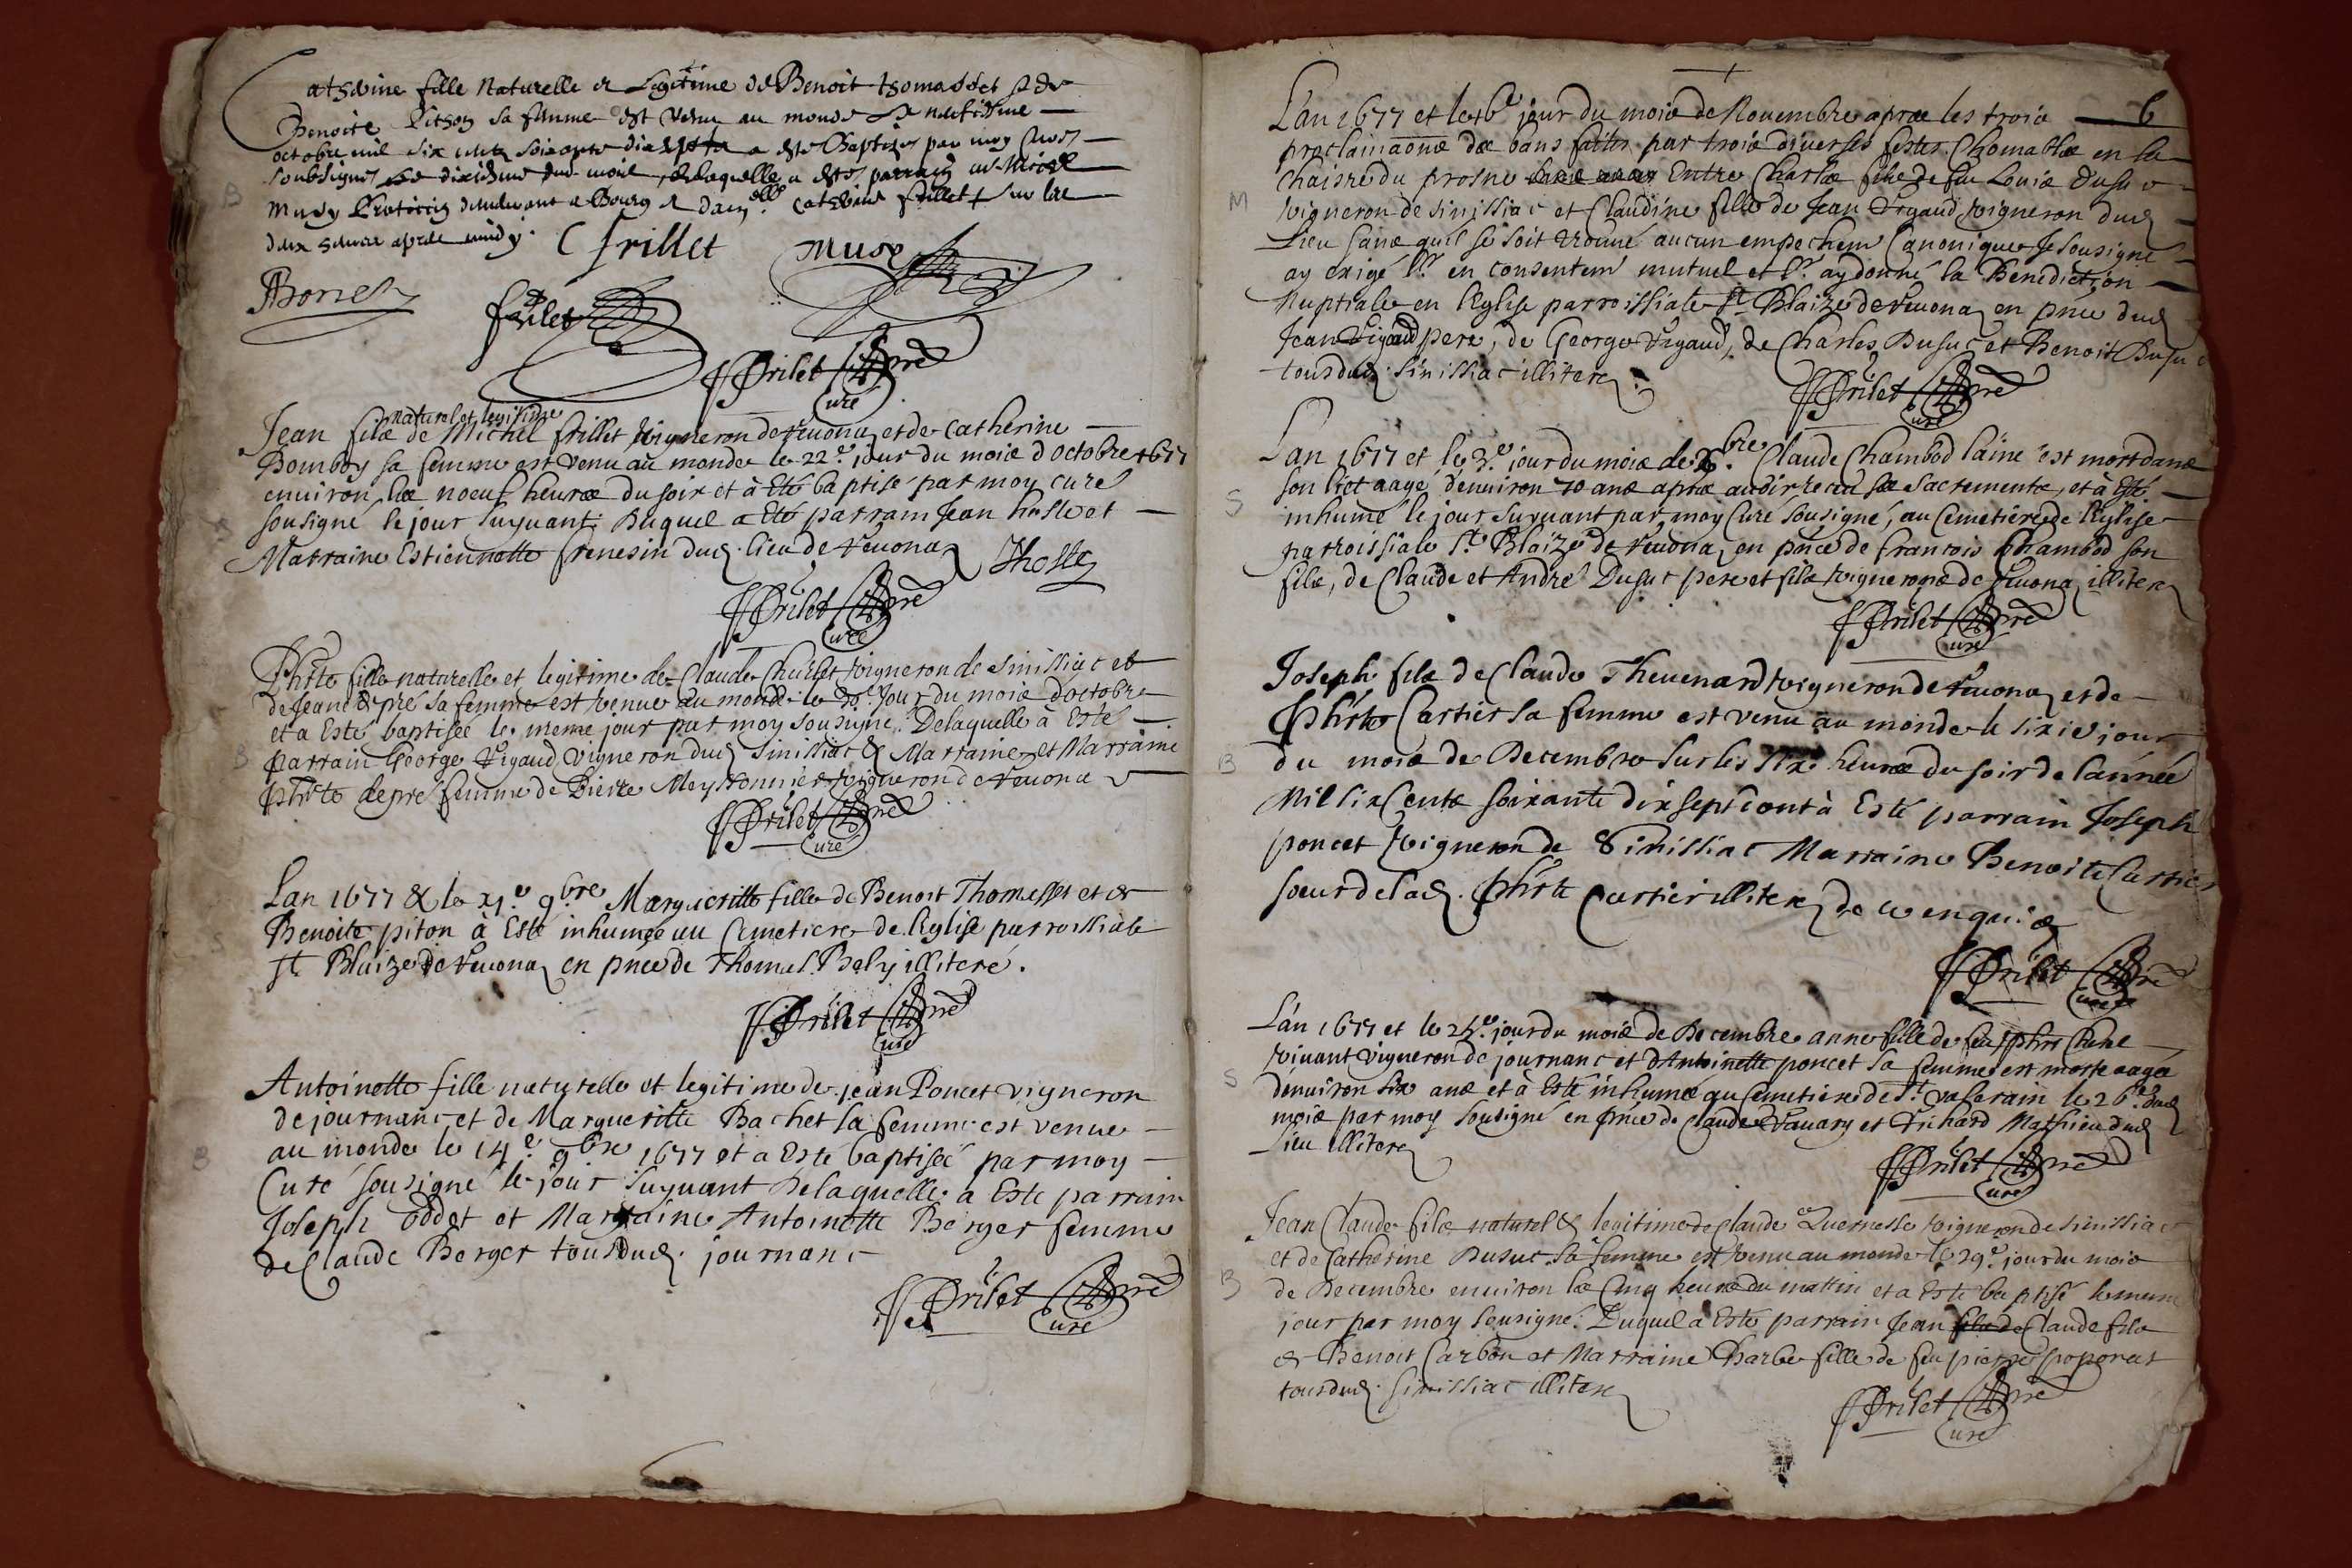 Catherine fille Naturelle et Legitime de Benoit Thomasset et de
Benoite Pithon sa femme est venu au monde le neufiesme
octobre mil six cents soixante dix sept a esté Baptisée par moy Curé
soubsigné le dixiesme dud. moies, de laquelle a estés parrain
Musy Praticien demeurant a Bourg et dam.elle Catherine frillet sur les
deux heure apres midy. C frillet Muse
frilet
F Frilet pre
Curé
Jean filz naturel et legitime de Michel frillet vigneron de revona et de Catherine
Bomboy sa femme est venu au monde le 22.e jour du mois d octobre 1677
enuiron les noeuf heures du soir et à Eté baptisé par moy curé
sousigné le jour suyuant. Duquel a Eté parrain Jean
Marraine Estiennette frenesin dud. lieu de revona
F Frilet pre
Curé
Phte fille naturelle et legitime de Claude Chullet vigneron de Sinissiac et
de Jeane depré sa femme est venue au monde le jour du mois d'octobre
et a Esté baptisée le meme jour par moy sousigné. Delaquelle à Esté
parrain George Vigaud vigneron dud. Sinissiac & Marraine et Marraine
phte depre femme de Pierre Meyssonnier vigneron de revona
F Frilet pre
Curé
B
Lan 1677 & le xj.e 9bre Margueritte fille de Benoit Thomasset et de
Benoite piton à Esté inhumée au Cimetiere de l'Eglise parroissiale
St Blaize de revona en pnce de Thomas Bely illiteré.
F Frilet pre
Curé
B
Antoinette fille naturelle et legitime de jean Poncet vigneron
de journanc et de Margueritte Bachet sa femme est venue
au monde le 14.e 9bre 1677 et a Esté baptisée par moy
Curé sousigné le jour suyuant Delaquelle a Esté parrain
Joseph oddet et Marraine Antoinette Berger femme
de Claude Berger tous dud. journanc
F Frilet pre
Curé
6
M
L'an 1677 et le 16e jour du mois de Nouembre apres les trois
proclamaõns des bans faites par trois diuerses festes Chomables en la
chaisre du prosne Entre Charles filz de feu Louis Dusuc
vigneron de sinissiac et Claudine fille de Jean Vigaud vigneron dud.
Lieu sans quil se soit trouué aucun empechem Canonique Je sousigné
ay exigé lr. en consentem mutuel et lr. ay donné la Benediction
Nuptiale en l'Eglise parroissiale St Blaize de revona en pnce dud.
Jean Vigaud pere, de George Vigaud, de Charles Dusuc et Benoit Dusuc
tous dud. Sinissiac illiteres
F Frilet pre
Curé
S
Lan 1677 et le 3.e jour du mois de Xbre Claude Chambod laine est mort dans
son lict aagé denuiron 70 ans apres auoir receu ses sacrements, et à Esté
inhumé le jour suyuant par moy Curé sousigné, au Cemetiere de l'Eglise
parroissiale St Blaize de revona en pnce de francois Chambod son
filz, de Claude et André Dusuc pere et filz vignerons de revona illiteres
F Frilet pre
Curé
B
Joseph filz de Claude Theuenard vigneron de revona et de
Phte Cartier sa femme est venu au monde le sixie jour
du mois de Decembre sur les six heures du soir de l'année
Mil six Cents soixante dix sept dont à Esté parrain Joseph
poncet vigneron de Sinissiac Marraine Benoite Cartier
soeur de lad. Phte Cartier illiteres de ce enquis
F Frilet pre
Curé
S
L'an 1677 et le 25.e jour du mois de Decembre anne fille de feu
viuant vigneron de journanc et d'Antoinette poncet sa femme est morte aagée
denuiron six ans et à Esté inhumée au Cemetiere de St. valerain le 26.e dud.
mois par moy sousigné en pnce de Claude Vauary et Richard Mathieu dud.
Lieu illiteres
F Frilet pre
Curé
B
Jean Claude filz naturel & legitime de Claude Quernesse vigneron de sinissiac
et de Catherine Dusuc sa femme est venu au monde le 29.e jour du mois
de Decembre enuiron les Cinq heures du mattin et a Esté baptisé le meme
jour par moy sousigné. Duquel à Esté parrain Jean filz de Claude filz
de Benoit Carbon et Marraine Barbe fille de feu pierre poponet
tous dud. sinissiac illiteres
F Frilet pre
Curé